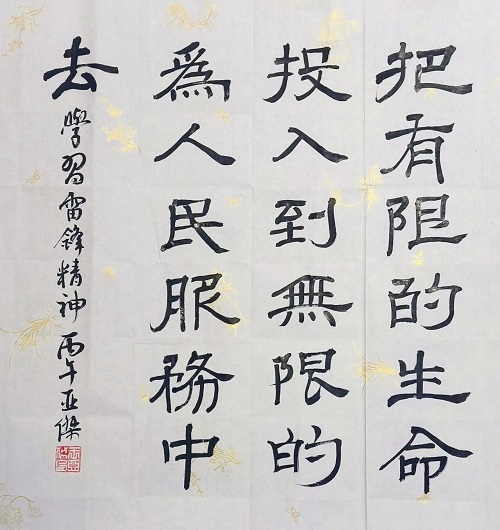 把有限的生命
投入到無限的
為人民服務中
去
學習雷鋒精神 丙午亚傑